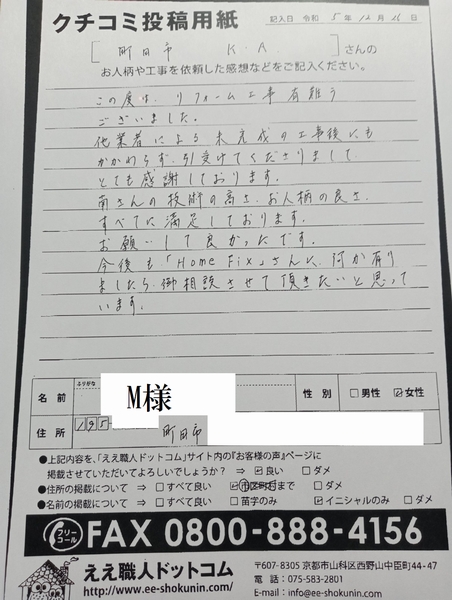 クチコミ投稿用紙
記入日 令和 5年 12月 26日
[ 町田市 K.A. ]さんの
お人柄や工事を依頼した感想などをご記入ください。
この度は、リフォーム工事有難う
ございました。
他業者による未完成の工事後にも
かかわらず、引受けてくださりまして、
とても感謝しております。
南さんの技術の高さ、お人柄の良さ、
すべてに満足しております。
お願いして良かったです。
今後も「Home Fix」さんに、何か有り
ましたら、御相談させて頂きたいと思って
います。
ふりがな
名前 M様 性別 □男性 ☑女性
住所 195- 町田市
●上記内容を、「ええ職人ドットコム」サイト内の『お客様の声』ページに
掲載させていただいてよろしいでしょうか? ⇒ ☑良い □ダメ
●住所の掲載について ⇒ □すべて良い ☑市区町村まで □ダメ
●名前の掲載について ⇒ □すべて良い □苗字のみ ☑イニシャルのみ □ダメ
フリーコール FAX 0800-888-4156
ええ職人ドットコム
http://www.ee-shokunin.com/
〒607-8305 京都市山科区西野山中臣町44-47
電話:075-583-2801
E-mail:info@ee-shokunin.com